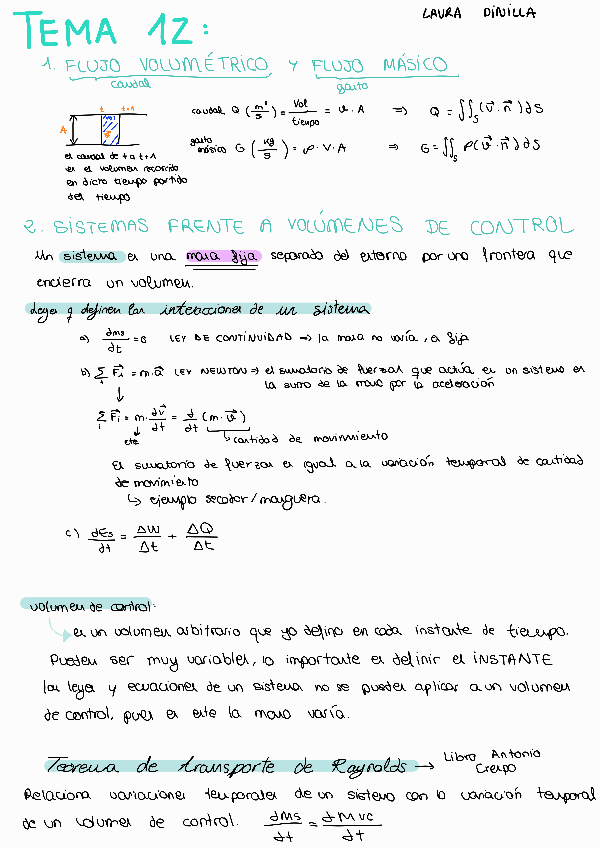 LAURA DINILLA
TEMA 12:
1. FLUJO VOLUMÉTRICO Y FLUJO MÁSICO
caudal gasto
t t+1
A
caudal Q (m³/s) = Vol/tiempo = v · A ⇒ Q = ∬s (v⃗ · n⃗) dS
gasto másico G (kg/s) = ρ · V · A ⇒ G = ∬s ρ(v⃗ · n⃗) dS
el caudal de t a t+1
es el volumen recorrido
en dicho tiempo partido
del tiempo
2. SISTEMAS FRENTE A VOLÚMENES DE CONTROL
Un sistema es una masa fija separado del externo por una frontera que
encierra un volumen.
Leyes q definen las interacciones de un sistema
a) dms/dt = 0 LEY DE CONTINUIDAD → la masa no varía, es fija
b) Σi F⃗i = m · a⃗ LEY NEWTON → el sumatorio de fuerzas que actúa es un sistema es
la suma de la masa por la aceleración
Σ F⃗i = m · dv⃗/dt = d/dt (m · v⃗)
cte cantidad de movimiento
El sumatorio de fuerzas es igual a la variación temporal de cantidad
de movimiento
↳ ejemplo secador/manguera.
c) dEs/dt = ΔW/Δt + ΔQ/Δt
volumen de control:
es un volumen arbitrario que yo defino en cada instante de tiempo.
Pueden ser muy variables, lo importante es definir el INSTANTE
las leyes y ecuaciones de un sistema no se pueden aplicar a un volumen
de control, pues en este la masa varía.
Teorema de transporte de Raynolds → Libro Antonio
Crespo
Relaciona variaciones temporales de un sistema con la variación temporal
de un volumen de control. dMs/dt = dMvc/dt